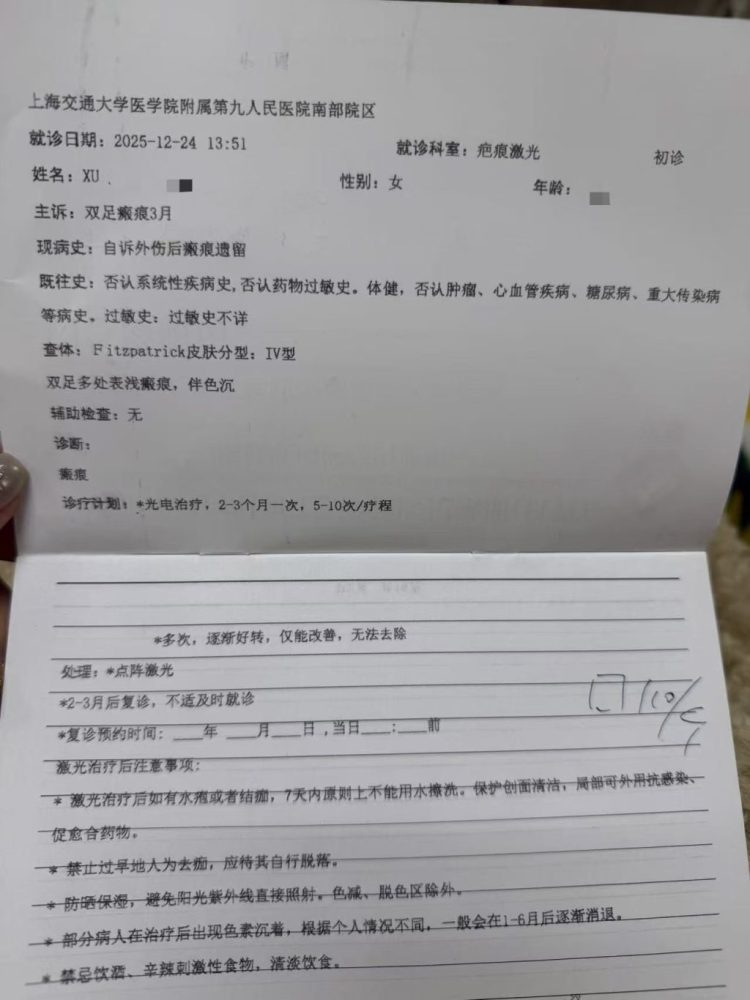 上海交通大学医学院附属第九人民医院南部院区
就诊日期: 2025-12-24 13:51 就诊科室: 疤痕激光 初诊
姓名: XU 性别: 女 年龄:
主诉: 双足瘢痕3月
现病史: 自诉外伤后瘢痕遗留
既往史: 否认系统性疾病史,否认药物过敏史。体健, 否认肿瘤、心血管疾病、糖尿病、重大传染病
等病史。过敏史: 过敏史不详
查体: Fitzpatrick皮肤分型: IV型
双足多处表浅瘢痕, 伴色沉
辅助检查: 无
诊断:
瘢痕
诊疗计划: *光电治疗, 2-3个月一次, 5-10次/疗程
*多次, 逐渐好转, 仅能改善, 无法去除
处理: *点阵激光
*2-3月后复诊, 不适及时就诊
*复诊预约时间: ____年 ____月____日 ,当日____:____前
激光治疗后注意事项:
* 激光治疗后如有水疱或者结痂, 7天内原则上不能用水擦洗。保护创面清洁, 局部可外用抗感染、
促愈合药物。
* 禁止过早地人为去痂, 应待其自行脱落。
* 防晒保湿, 避免阳光紫外线直接照射。色减、脱色区除外。
* 部分病人在治疗后出现色素沉着, 根据个人情况不同, 一般会在1-6月后逐渐消退。
* 禁忌饮酒、辛辣刺激性食物, 清淡饮食。